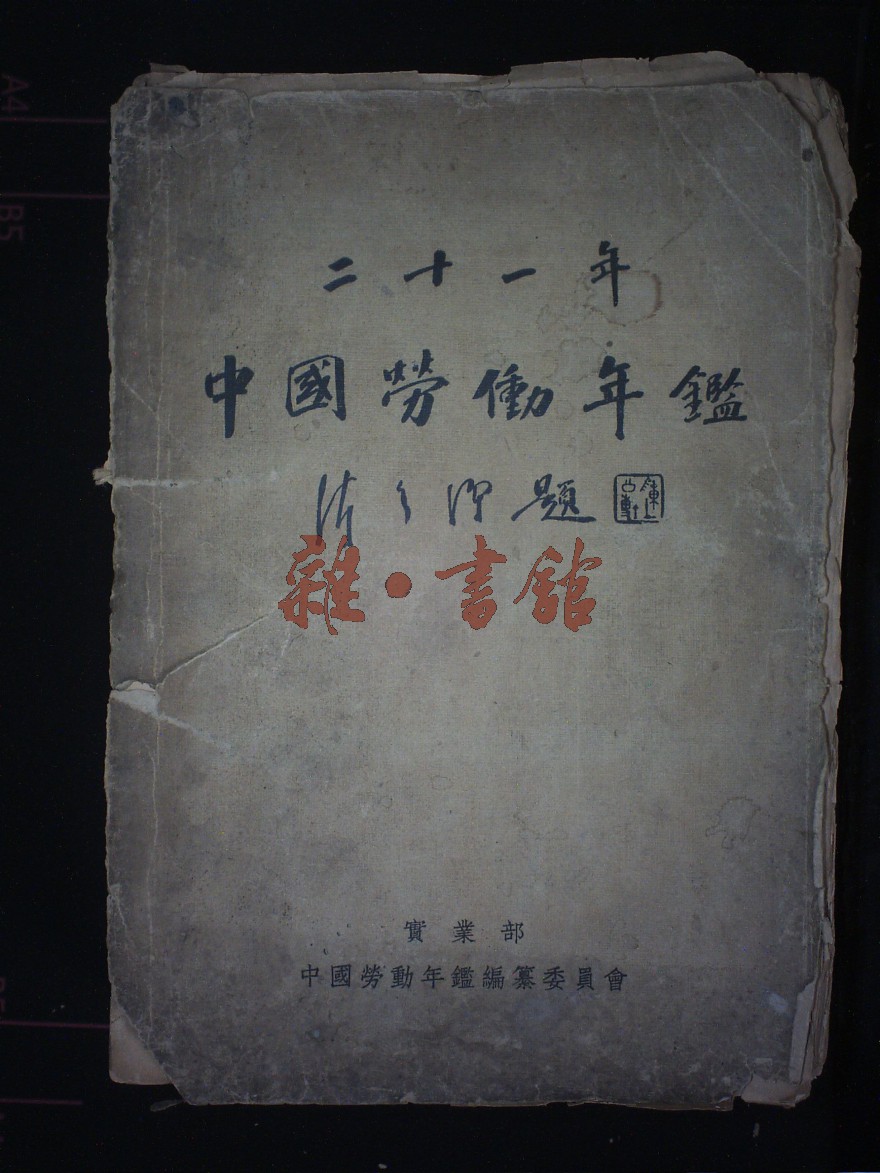 二十一年
中國勞働年鑑
題
雜·書館
實業部
中國勞動年鑑編纂委員會
A4
B5